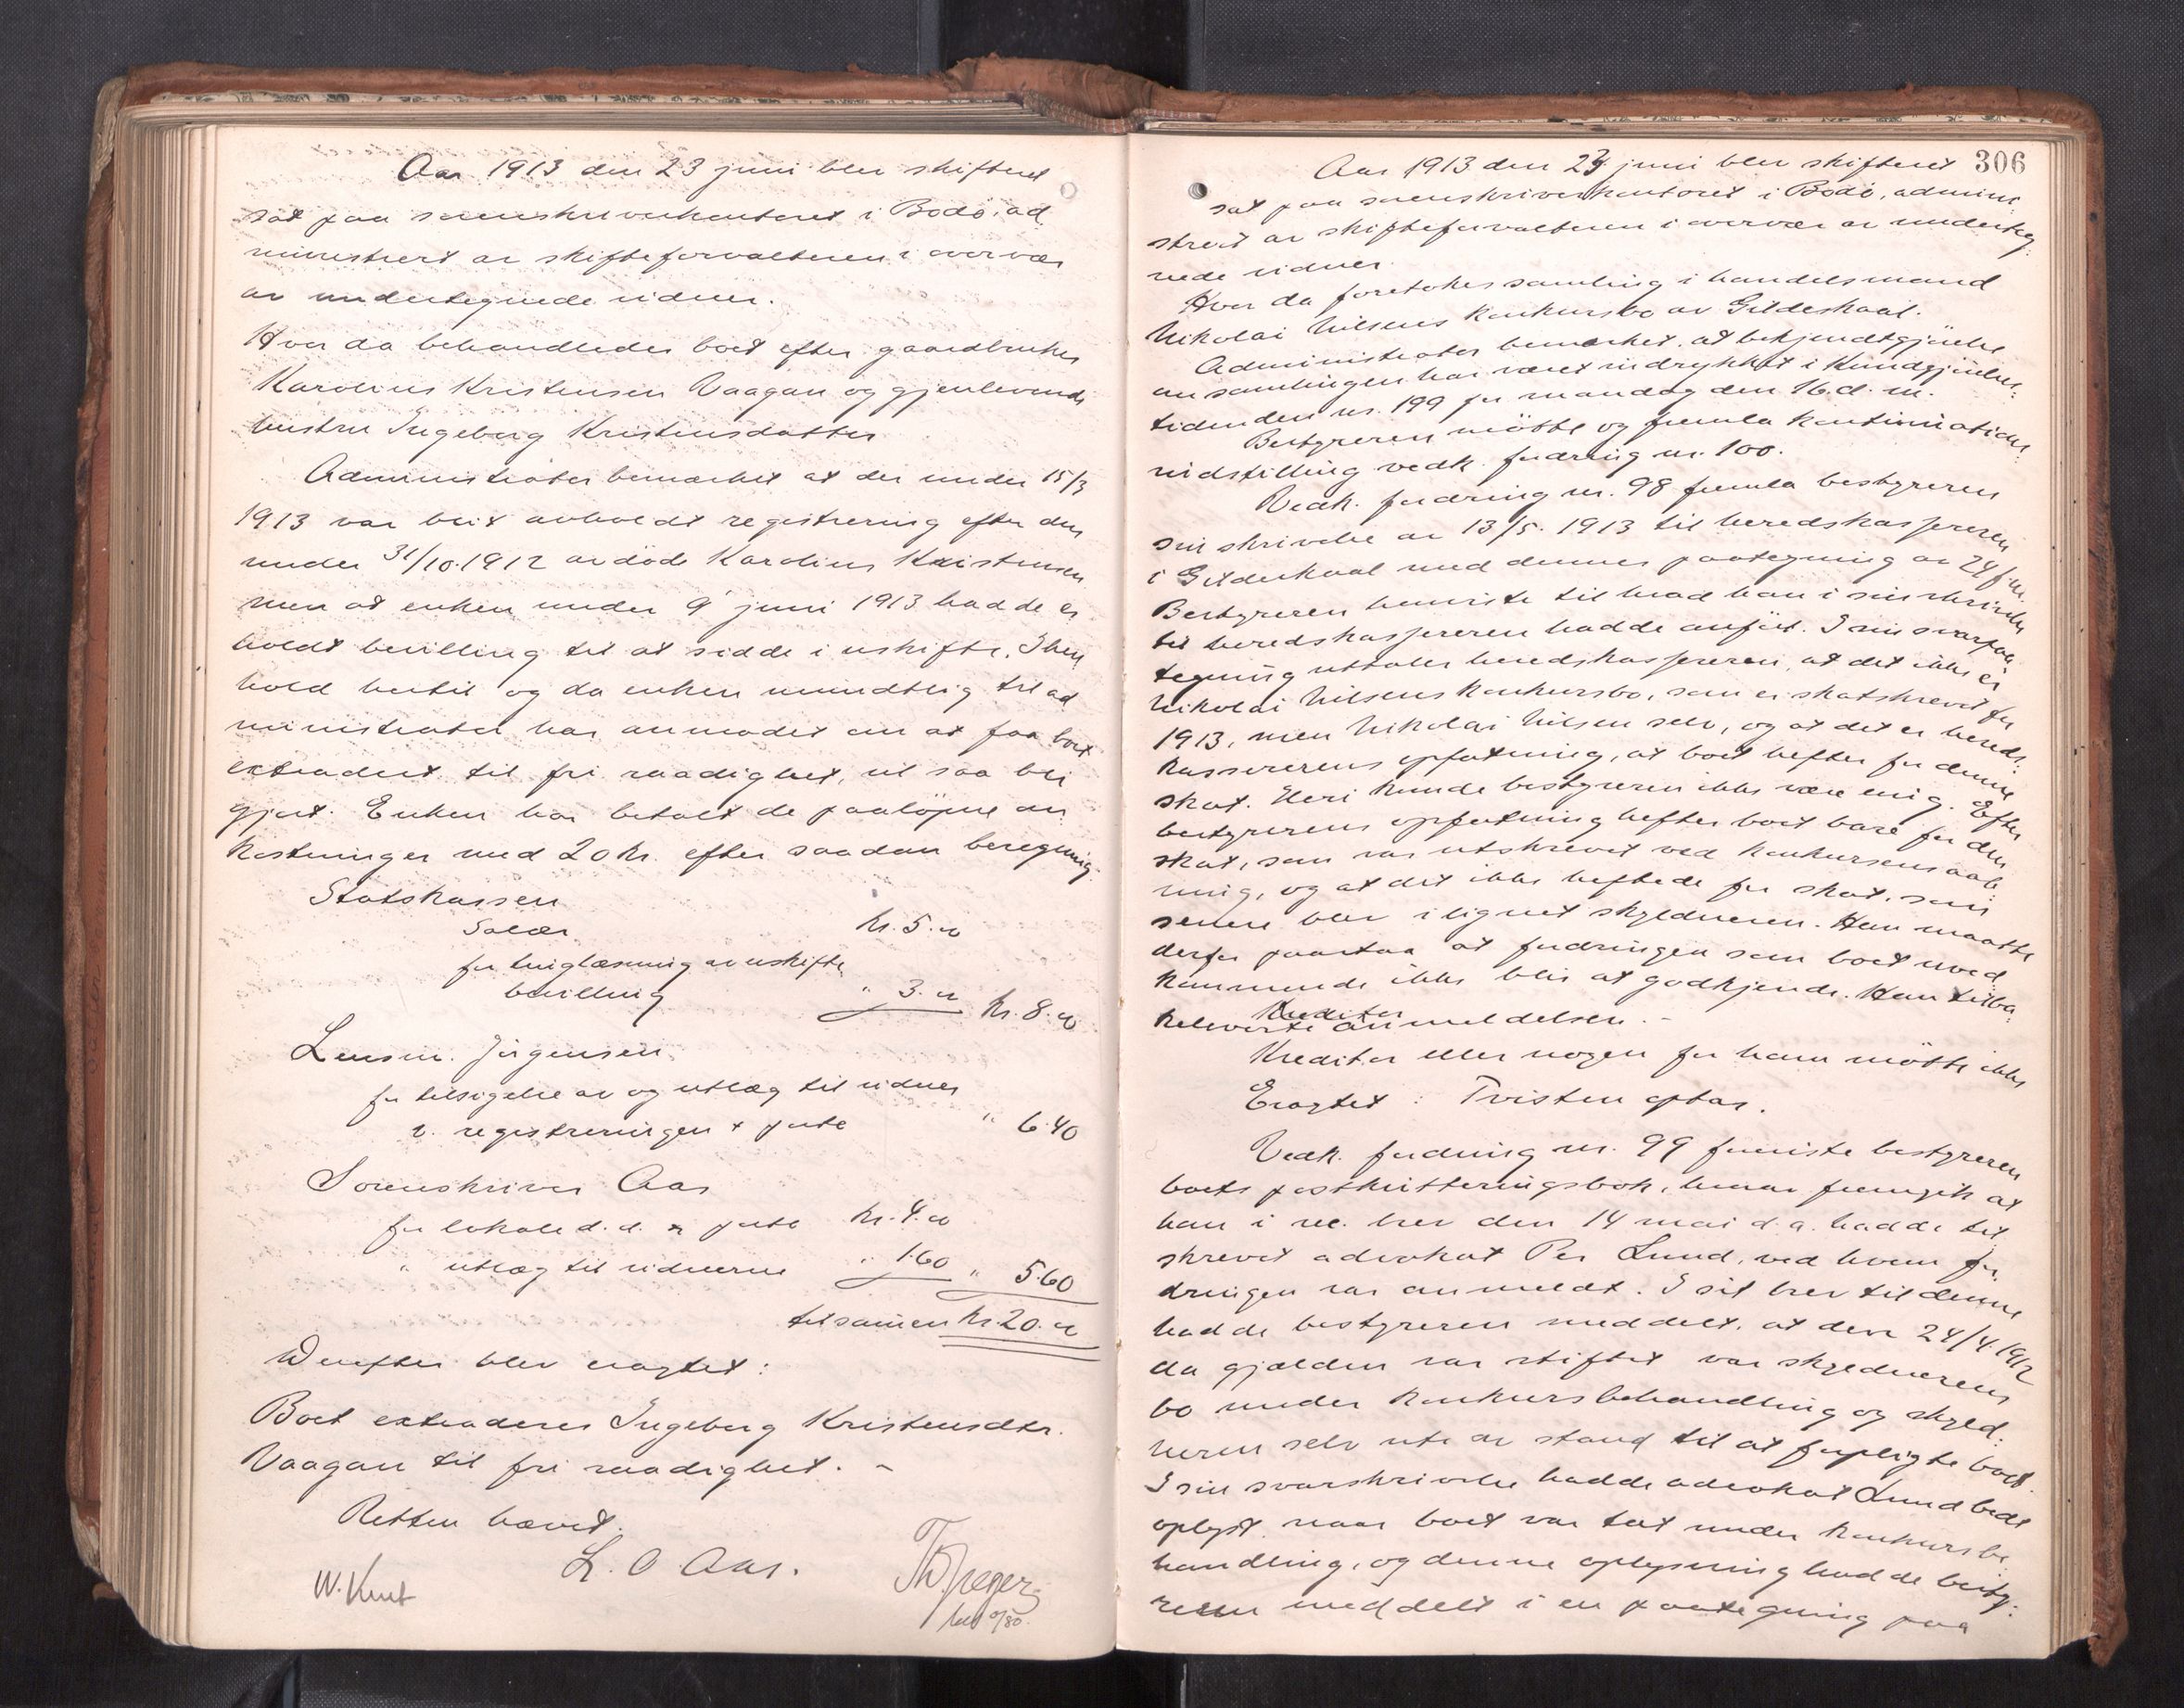 Aar 1913 den 23 juni blev skifteret
sat paa sorenskriverkontoret i Bodø, ad
ministrert av skifteforvalteren i overvær
av undertegnede vidner.
Hvor da behandledes boet efter gaardbruker
Karolius Kristensen Vaagan og gjenlevende
hustru Ingeborg Kristensdatter
Administrator bemerket at der under 15/3
1913 var blit avholdt registrering efter den
under 31/10.1912 avdøde Karolius Kristensen
men at enken under 9 juni 1913 hadde er
holdt bevilling til at sidde i uskifte. I hen
hold hertil og da enken mundtlig til ad
ministrator har anmodet om at faa boet
extradert til fri raadighet, vil saa bli
gjort. Enken har betalt de paaløpne om
kostninger med 20 kr. efter saadan beregning
Statskassen
Salær kr. 5.00
for tinglæsning av uskifte
bevilling " 3.00 kr. 8.00
Lensm. Jørgensen
for tilsigelse av og utlæg til vidner
v. registreringen + porto " 6.40
Sorenskriver Aas
for lokale d. d. + porto kr. 4.00
" utlæg til vidnerne " 1.60 " 5.60
tilsamen kr. 20.00
Derefter blev eragtet:
Boet extraderes Ingeborg Kristensdtr.
Vaagan til fri raadighet. -
Retten hævet.
L. O Aas.
W. Knut
306
Aar 1913 den 24 juni blev skifteret
sat paa sorenskriverkontoret i Bodø, admini:
strert av skifteforvalteren i overvær av underteg:
nede vidner.
Hvor da foretokes samling i handelsmand
Nikolai Nilsens konkursbo av Gildeskaal.
Administrator bemerket, at bekjendtgjørelse
om samlingen har været indrykket i Kundgjørelses:
tidenden nr. 199 for mandag den 16. d. m.
Bestyreren møtte og fremla kontinuations:
indstilling vedk. fordring nr. 100.
Vedk. fordring nr. 98 fremla bestyreren
sin skrivelse av 13/5. 1913 til heredskassereren
i Gildeskaal med dennes paategning av 24 f. m.
Bestyreren henviste til hvad han i sin skrivelse
til heredskassereren hadde anført. I sin svarpaa
tegning uttaler heredskassereren, at det ikke er
Nikolai Nilsens konkursbo, som er skatskrevet for
1913, men Nikolai Nilsen selv, og at det er hereds:
kassererens opfatning, at boet hefter for denne
skat. Heri kunde bestyreren ikke være enig. Efter
bestyrerens opfatning hefter boet bare for den
skat, som var utskrevet ved konkursens aab
ning, og at det ikke heftede for skat, som
senere blev ilignet skyldneren. Han maatte
derfor paastaa at fordringen som boet uved
kommende ikke blir at godkjende. Han tilba:
keleverte anmeldelsen. -
Kreditor
Kreditor eller nogen for ham møtte ikke
Eragtet: Tvisten optas.
Vedk. fordring nr. 99 foreviste bestyreren
boets postkvitteringsbok, hvorav fremgik at
han i rec. brev den 14 mai d. a. hadde til
skrevet advokat Per Lund, ved hvem for
dringen var anmeldt. I sit brev til denne
hadde bestyreren meddelt, at den 24/4. 1912
da gjælden var stiftet var skyldnerens
bo under konkursbehandling og skyld:
neren selv ute av stand til at forpligte boet.
I sin svarskrivelse hadde advokat Lund bedt
oplyst naar boet var tat under konkursbe
handling, og denne oplysning hadde besty:
reren meddelt i en paategning paa